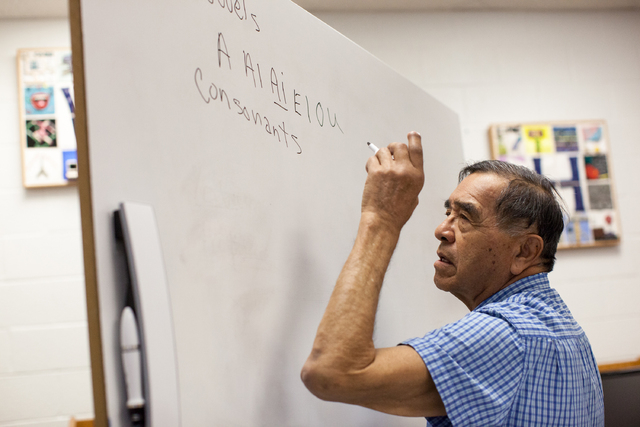 Vowels
A AI Ai E I O U
Consonants